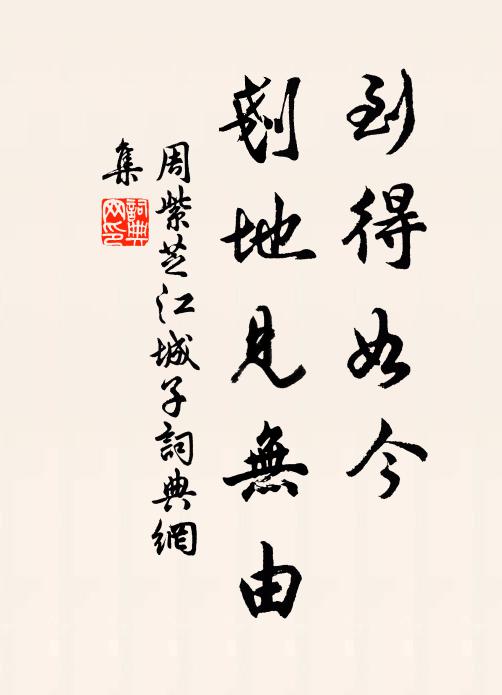 到得如今
剗地見無由
周紫芝江城子詞典網
集
詞典
网印